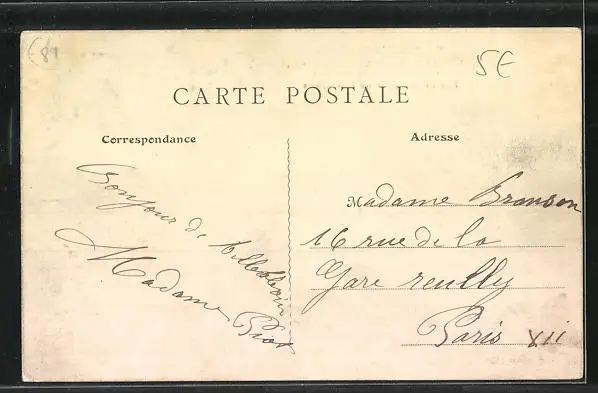 (89
5E
CARTE POSTALE
Correspondance
Adresse
Bonjour de
Madame
Madame Branson
16 rue de la
Gare reully
Paris XII